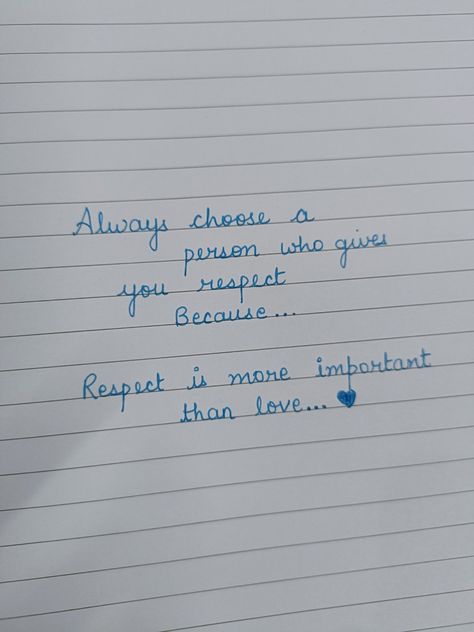 Always choose a
person who gives
you respect
Because...
Respect is more important
than love... 💙